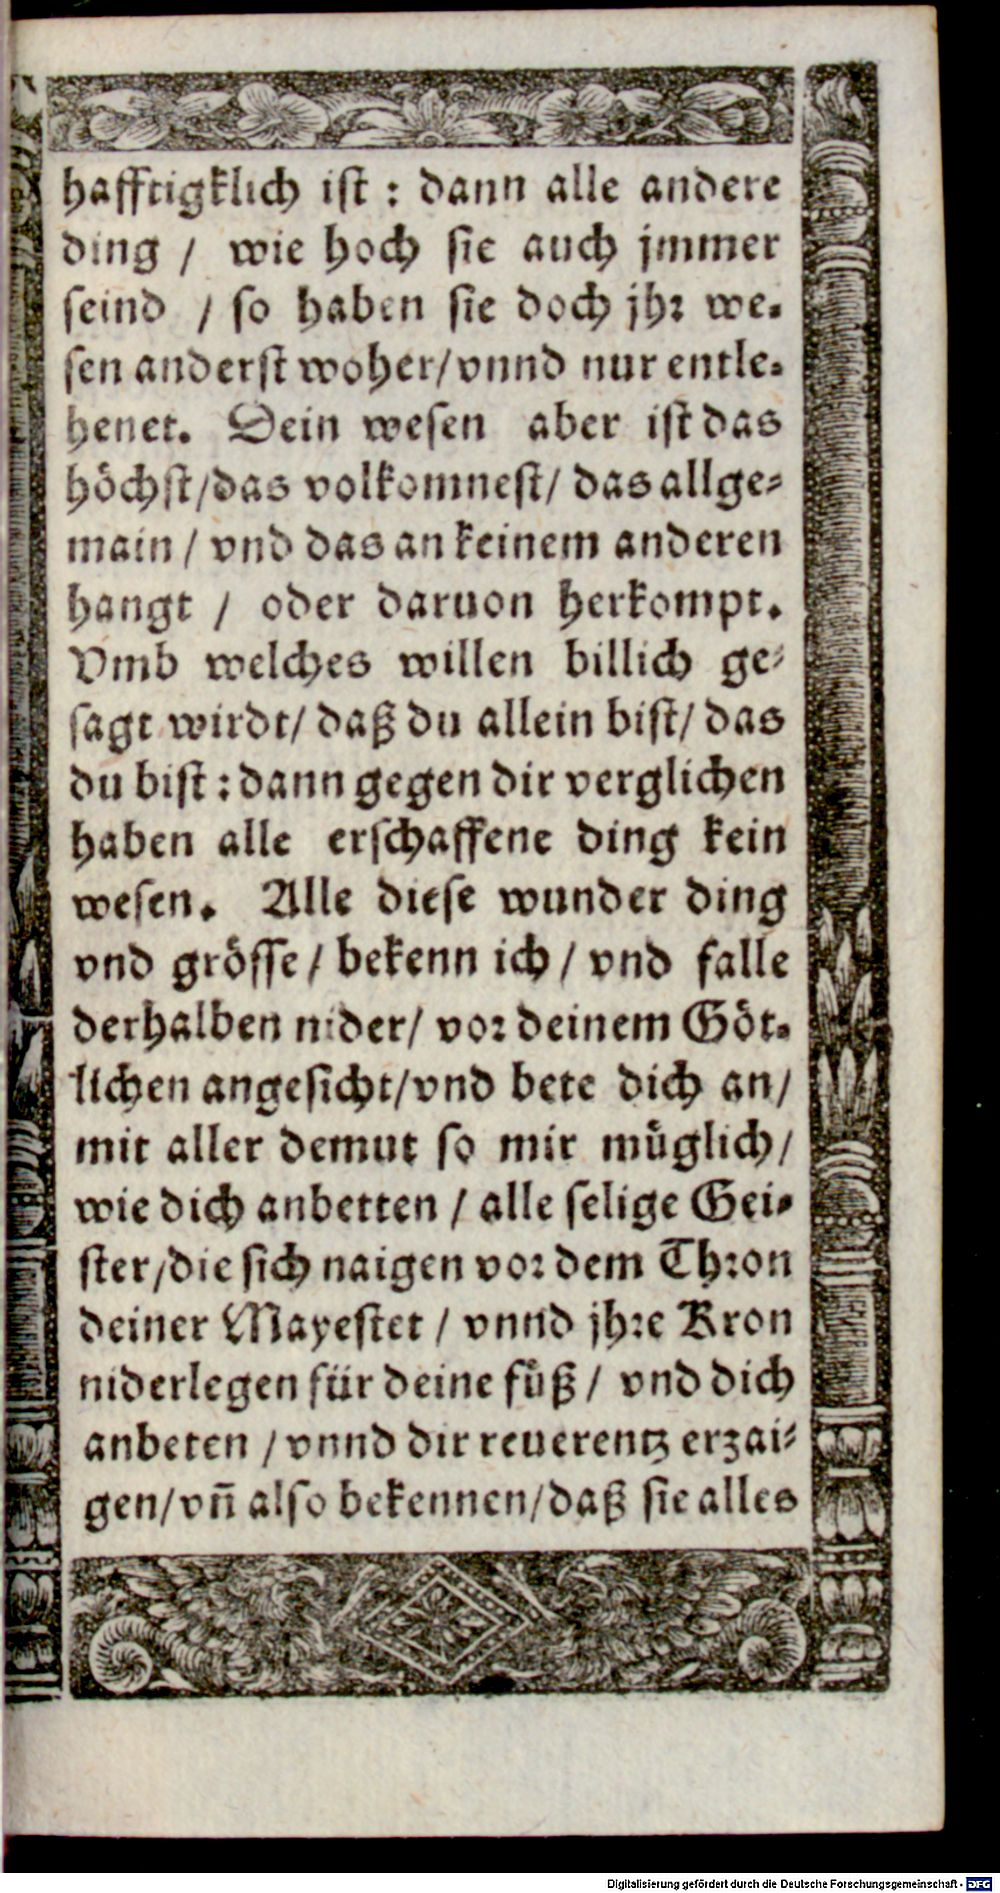 hafftigklich ist : dann alle andere
ding / wie hoch sie auch jmmer
seind / so haben sie doch jhr we-
sen anderst woher/vnnd nur entle-
henet. Dein wesen aber ist das
höchst/das volkomnest/ das allge-
main / vnd das an keinem anderen
hangt / oder daruon herkompt.
Vmb welches willen billich ge-
sagt wirdt/ daß du allein bist/ das
du bist : dann gegen dir verglichen
haben alle erschaffene ding kein
wesen. Alle diese wunder ding
vnd grösse / bekenn ich / vnd falle
derhalben nider/ vor deinem Göt-
lichen angesicht/vnd bete dich an/
mit aller demut so mir müglich/
wie dich anbetten / alle selige Gei-
ster/die sich naigen vor dem Thron
deiner Mayestet / vnnd jhre Kron
niderlegen für deine füß / vnd dich
anbeten / vnnd dir reuerentz erzai-
gen/vñ also bekennen/daß sie alles
Digitalisierung gefördert durch die Deutsche Forschungsgemeinschaft - DFG